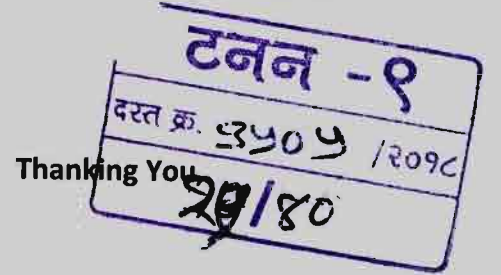 टनन -९
दस्त क्र. ३५०५ /२०१८
Thanking You
/४०